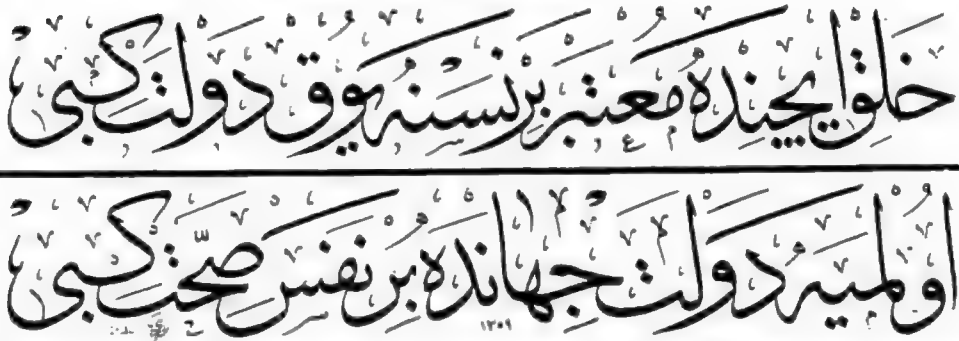 خلق ایچنده معتبر بر نسنه یوق دولت كبی
اولمیه دولت جهانده بر نفس صحت كبی
١٢٥٩